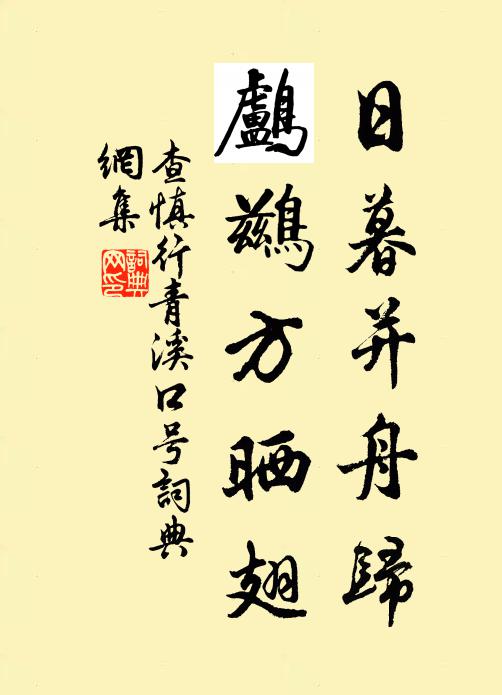 日暮并舟歸
鸕鷀方晒翅
查慎行青溪口号詞典
網集
詞典网印